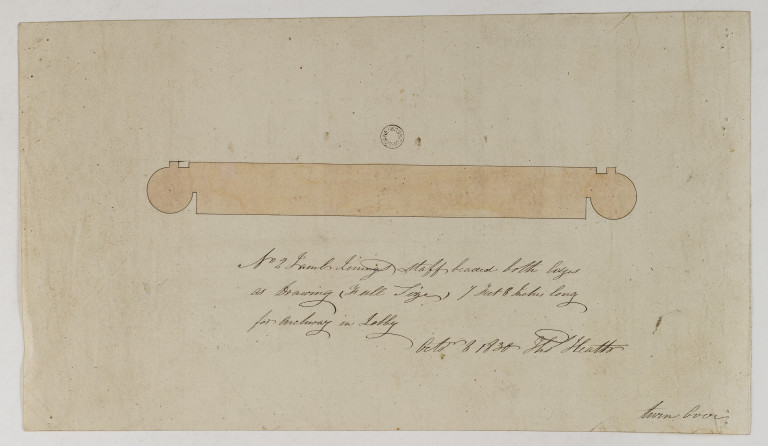 No 2 Jamb Linings staff beaded both Edges
as Drawing (Full Size) 7 Feet 8 Inches long
for Archway in Lobby
Octr 8 1830 Thos Heath
turn over